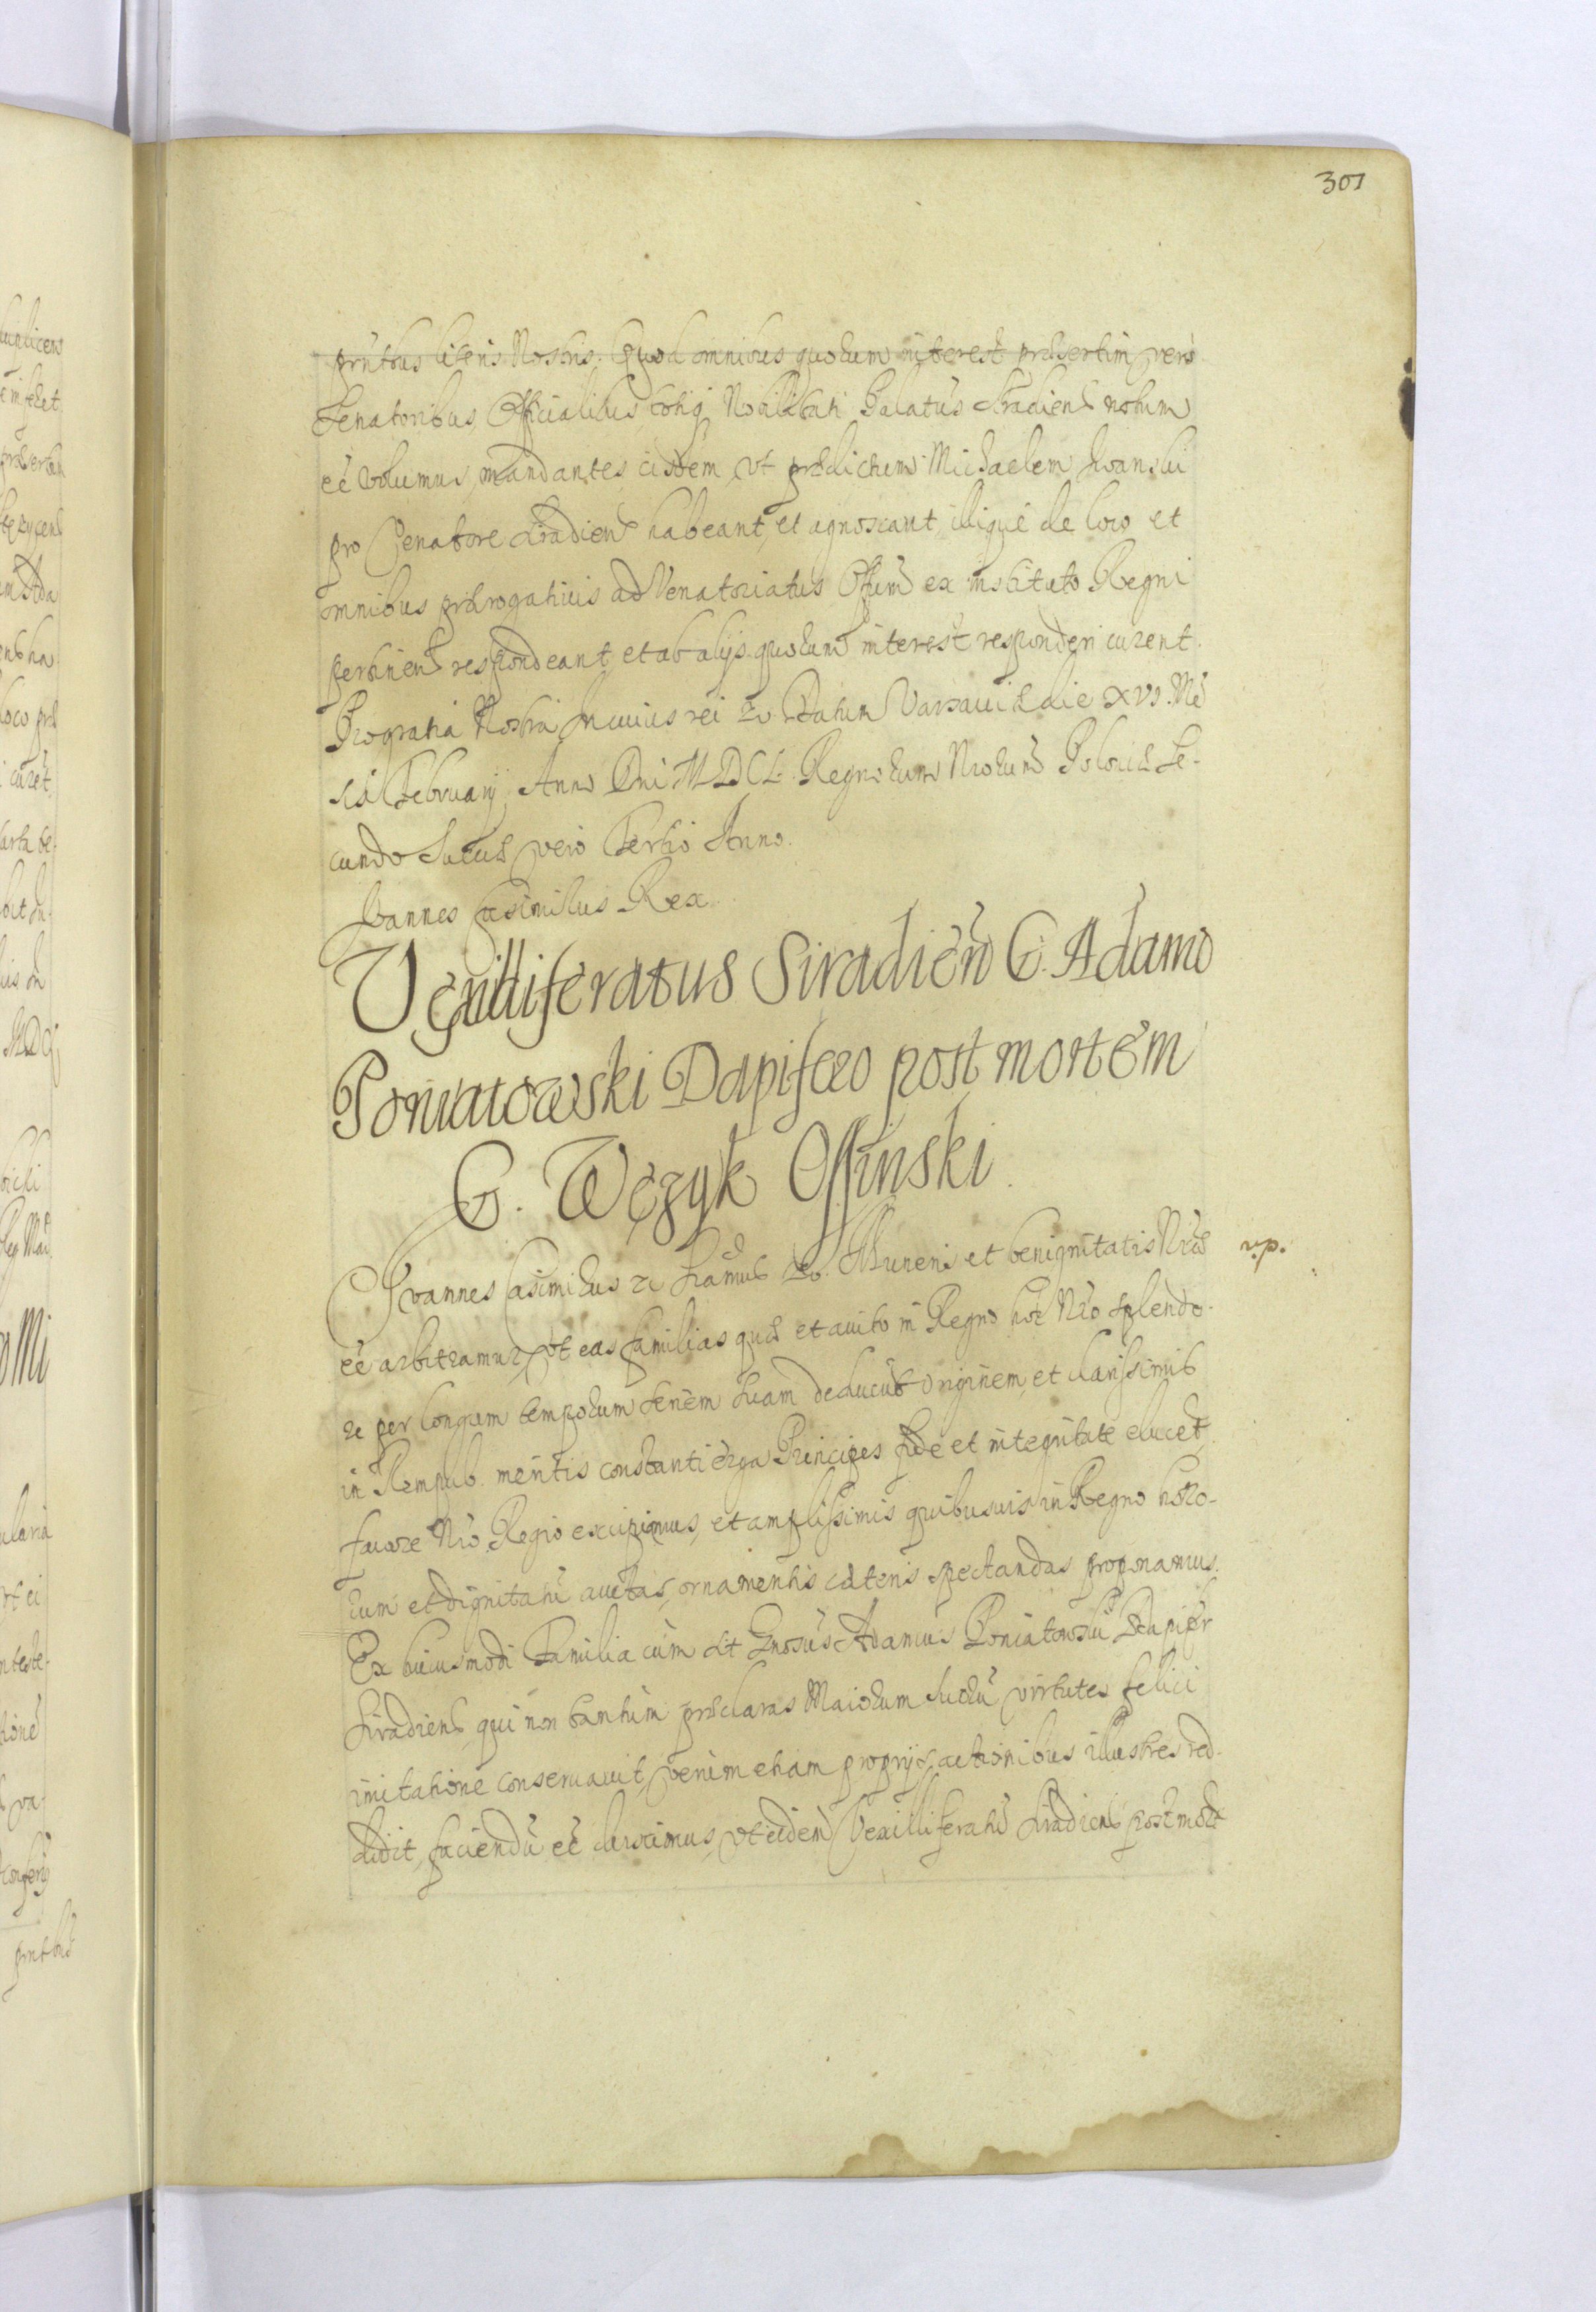 301
prntbus literis Nostris. Quod omnibus quorum interest præsertim vero
Senatoribus, Officialibus, totiq Nobilitati Palatus Siradiens notum
eē volumus, mandantes eisdem, ut prædictum Michaelem
pro Venatore Siradien habeant, et agnoscant, illique de loco et
omnibus prærogativis ad Venatoriatus Offum ex instituto Regni
pertinen respondeant, et ab alijs quorum interest responderi curent.
Pro gratia Nostra. In cuius rei &c Datum Varsaviæ die XVI. Me
sis February, Anno Dni MDCL. Regnorum Nrorum Poloniæ Se-
cundo Sueciæ vero Tertio Anno.
Ioannes Casimirus Rex.
Vexilliferatus Siradien G. Adamo
Poniatowski Dapifero post mortem
G. Wężyk Osinski.
Ioannes Casimirus &c Muneris et benignitatis Nræ
eē arbitramur, ut eas familias quæ et avito in Regno hoc Nro splendo-
re per longum temporum seriem suam deducūt originem, et clarissimis
in Rempub. meritis constanti erga Principes fide et integritate elucēt,
favore Nro Regio excipiamus, et amplissimis quibusvis in Regno hono-
rum et dignitatū auctas, ornamentis cæteris spectandas proponamus.
Ex huiusmodi Familia cum sit Gnosus Adamus Poniatowski Dapifer
Siradiens, qui non tantum præclaras Maiorum suorū virtutes felici
imitatione conservavit, verum etiam proprijs actionibus illustres red-
didit, faciendū eē duximus, ut eidem Vexilliferatū Siradiens post morte